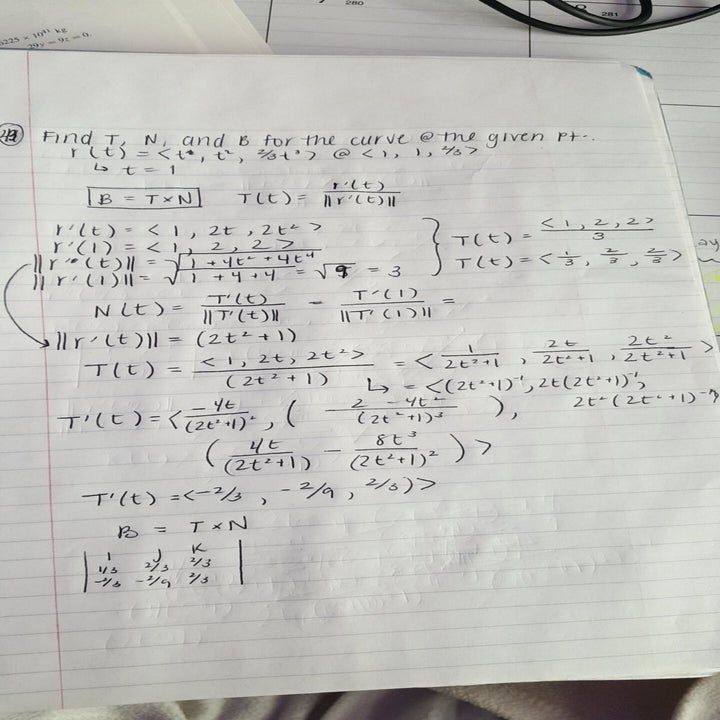 280
281
225 × 10²¹ kg
29y − 9z = 0.
Find T, N, and B for the curve @ the given pt..
r(t) = <t, t², 2/3 t³> @ <1, 1, 2/3>
↳ t = 1
B = T×N T(t) = r'(t) / ||r'(t)||
r'(t) = < 1, 2t, 2t² >
r'(1) = < 1, 2, 2 >
||r'(t)|| = √1 + 4t² + 4t⁴
||r'(1)|| = √1 + 4 + 4 = √9 = 3
T(t) = <1, 2, 2> / 3
T(t) = < 1/3, 2/3, 2/3 >
N(t) = T'(t) / ||T'(t)|| = T'(1) / ||T'(1)|| =
||r'(t)|| = (2t² + 1)
T(t) = <1, 2t, 2t²> / (2t² + 1) = < 1 / 2t²+1 , 2t / 2t²+1 , 2t² / 2t²+1 >
↳ = <(2t²+1)⁻¹, 2t(2t²+1)⁻¹,
2t²(2t²+1)⁻¹>
T'(t) = < −4t / (2t²+1)² , ( 2 − 4t² / (2t²+1)³ ),
( 4t / (2t²+1) − 8t³ / (2t²+1)² ) >
T'(t) = <−2/3 , −2/9 , 2/3)>
B = T×N
| i J K |
| 1/3 2/3 2/3 |
| −2/3 −2/9 2/3 |